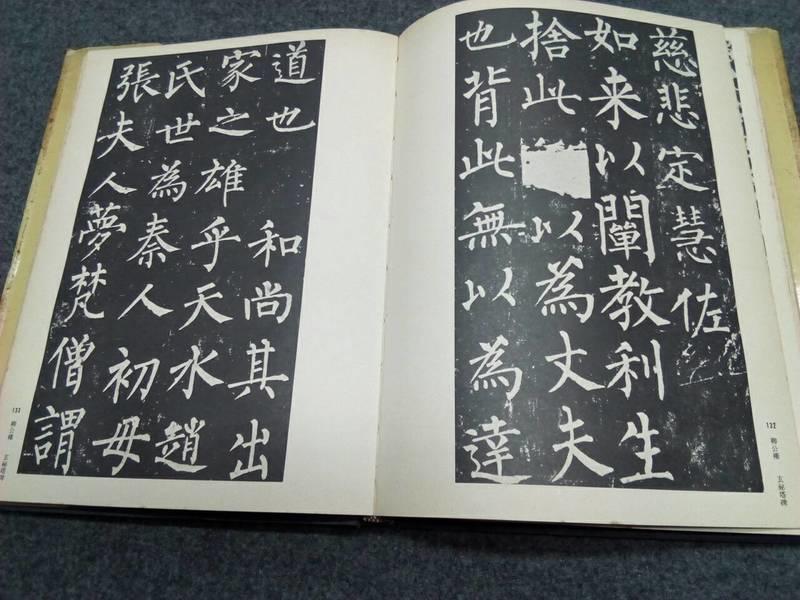 慈悲定慧佐
如来以闡教利生
捨此 以為丈夫
也背此無以為達
132 柳公権 玄秘塔碑
道也 和尚其出
家之雄乎天水趙
氏世為秦人初母
張夫人夢梵僧謂
133 柳公権 玄秘塔碑